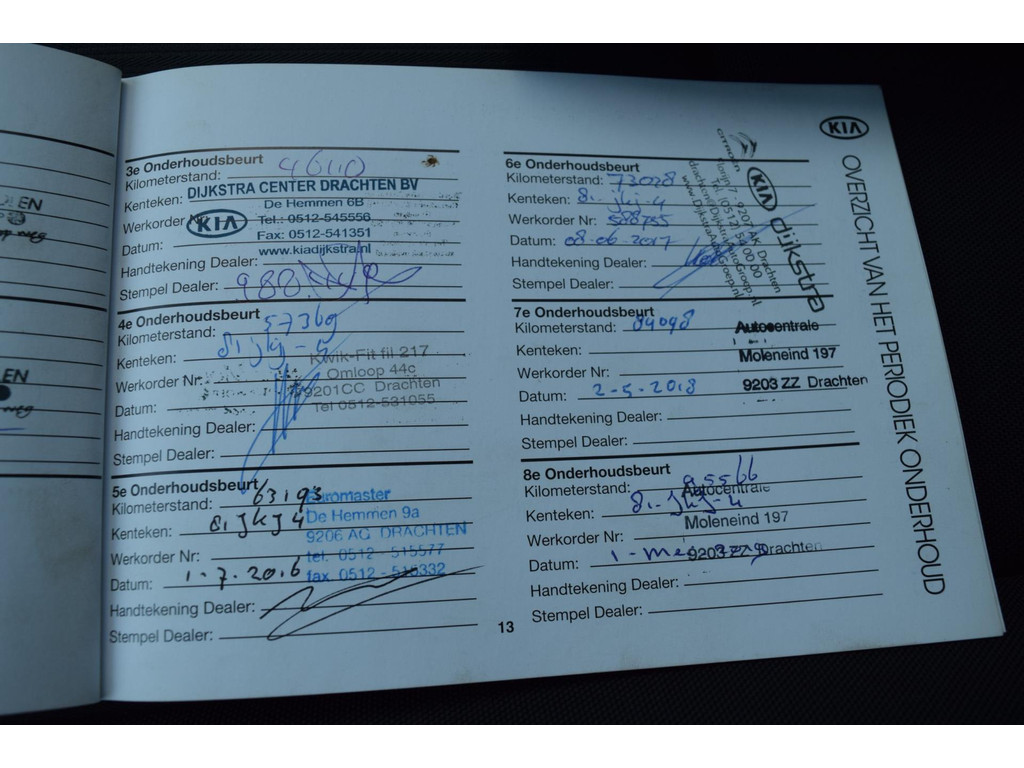 EN
EN
3e Onderhoudsbeurt
Kilometerstand: 46110
Kenteken:
DIJKSTRA CENTER DRACHTEN BV
De Hemmen 6B
Werkorder Nr:
KIA
Tel.: 0512-545556
Fax: 0512-541351
Datum:
www.kiadijkstra.nl
Handtekening Dealer:
Stempel Dealer:
4e Onderhoudsbeurt
Kilometerstand: 57369
Kenteken: 81-jkj-4
Kwik-Fit fil 217
Werkorder Nr:
Omloop 44c
9201CC Drachten
Datum:
Tel 0512-531055
Handtekening Dealer:
Stempel Dealer:
5e Onderhoudsbeurt
Kilometerstand: 63193
Euromaster
Kenteken: 81 JKJ 4
De Hemmen 9a
9206 AG DRACHTEN
Werkorder Nr:
tel. 0512 - 515577
Datum: 1-7-2016
fax. 0512 - 518332
Handtekening Dealer:
Stempel Dealer:
6e Onderhoudsbeurt
Kilometerstand: 73028
Kenteken: 81-jkj-4
Werkorder Nr: 588755
Datum: 08-06-2017
Handtekening Dealer:
Stempel Dealer:
CITROËN
KIA dijkstra
9207 AK Drachten
Tel. (0512) 54 00 00
7e Onderhoudsbeurt
Kilometerstand: 84098
Autocentrale
Kenteken:
Moleneind 197
Werkorder Nr:
9203 ZZ Drachten
Datum: 2-5-2018
Handtekening Dealer:
Stempel Dealer:
8e Onderhoudsbeurt
Kilometerstand: 95566
Autocentrale
Kenteken: 81-JKJ-4
Moleneind 197
Werkorder Nr:
9203 ZZ Drachten
Datum: 1-mei-2019
Handtekening Dealer:
Stempel Dealer:
13
KIA
OVERZICHT VAN HET PERIODIEK ONDERHOUD